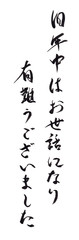 旧年中はお世話になり
有難うございました